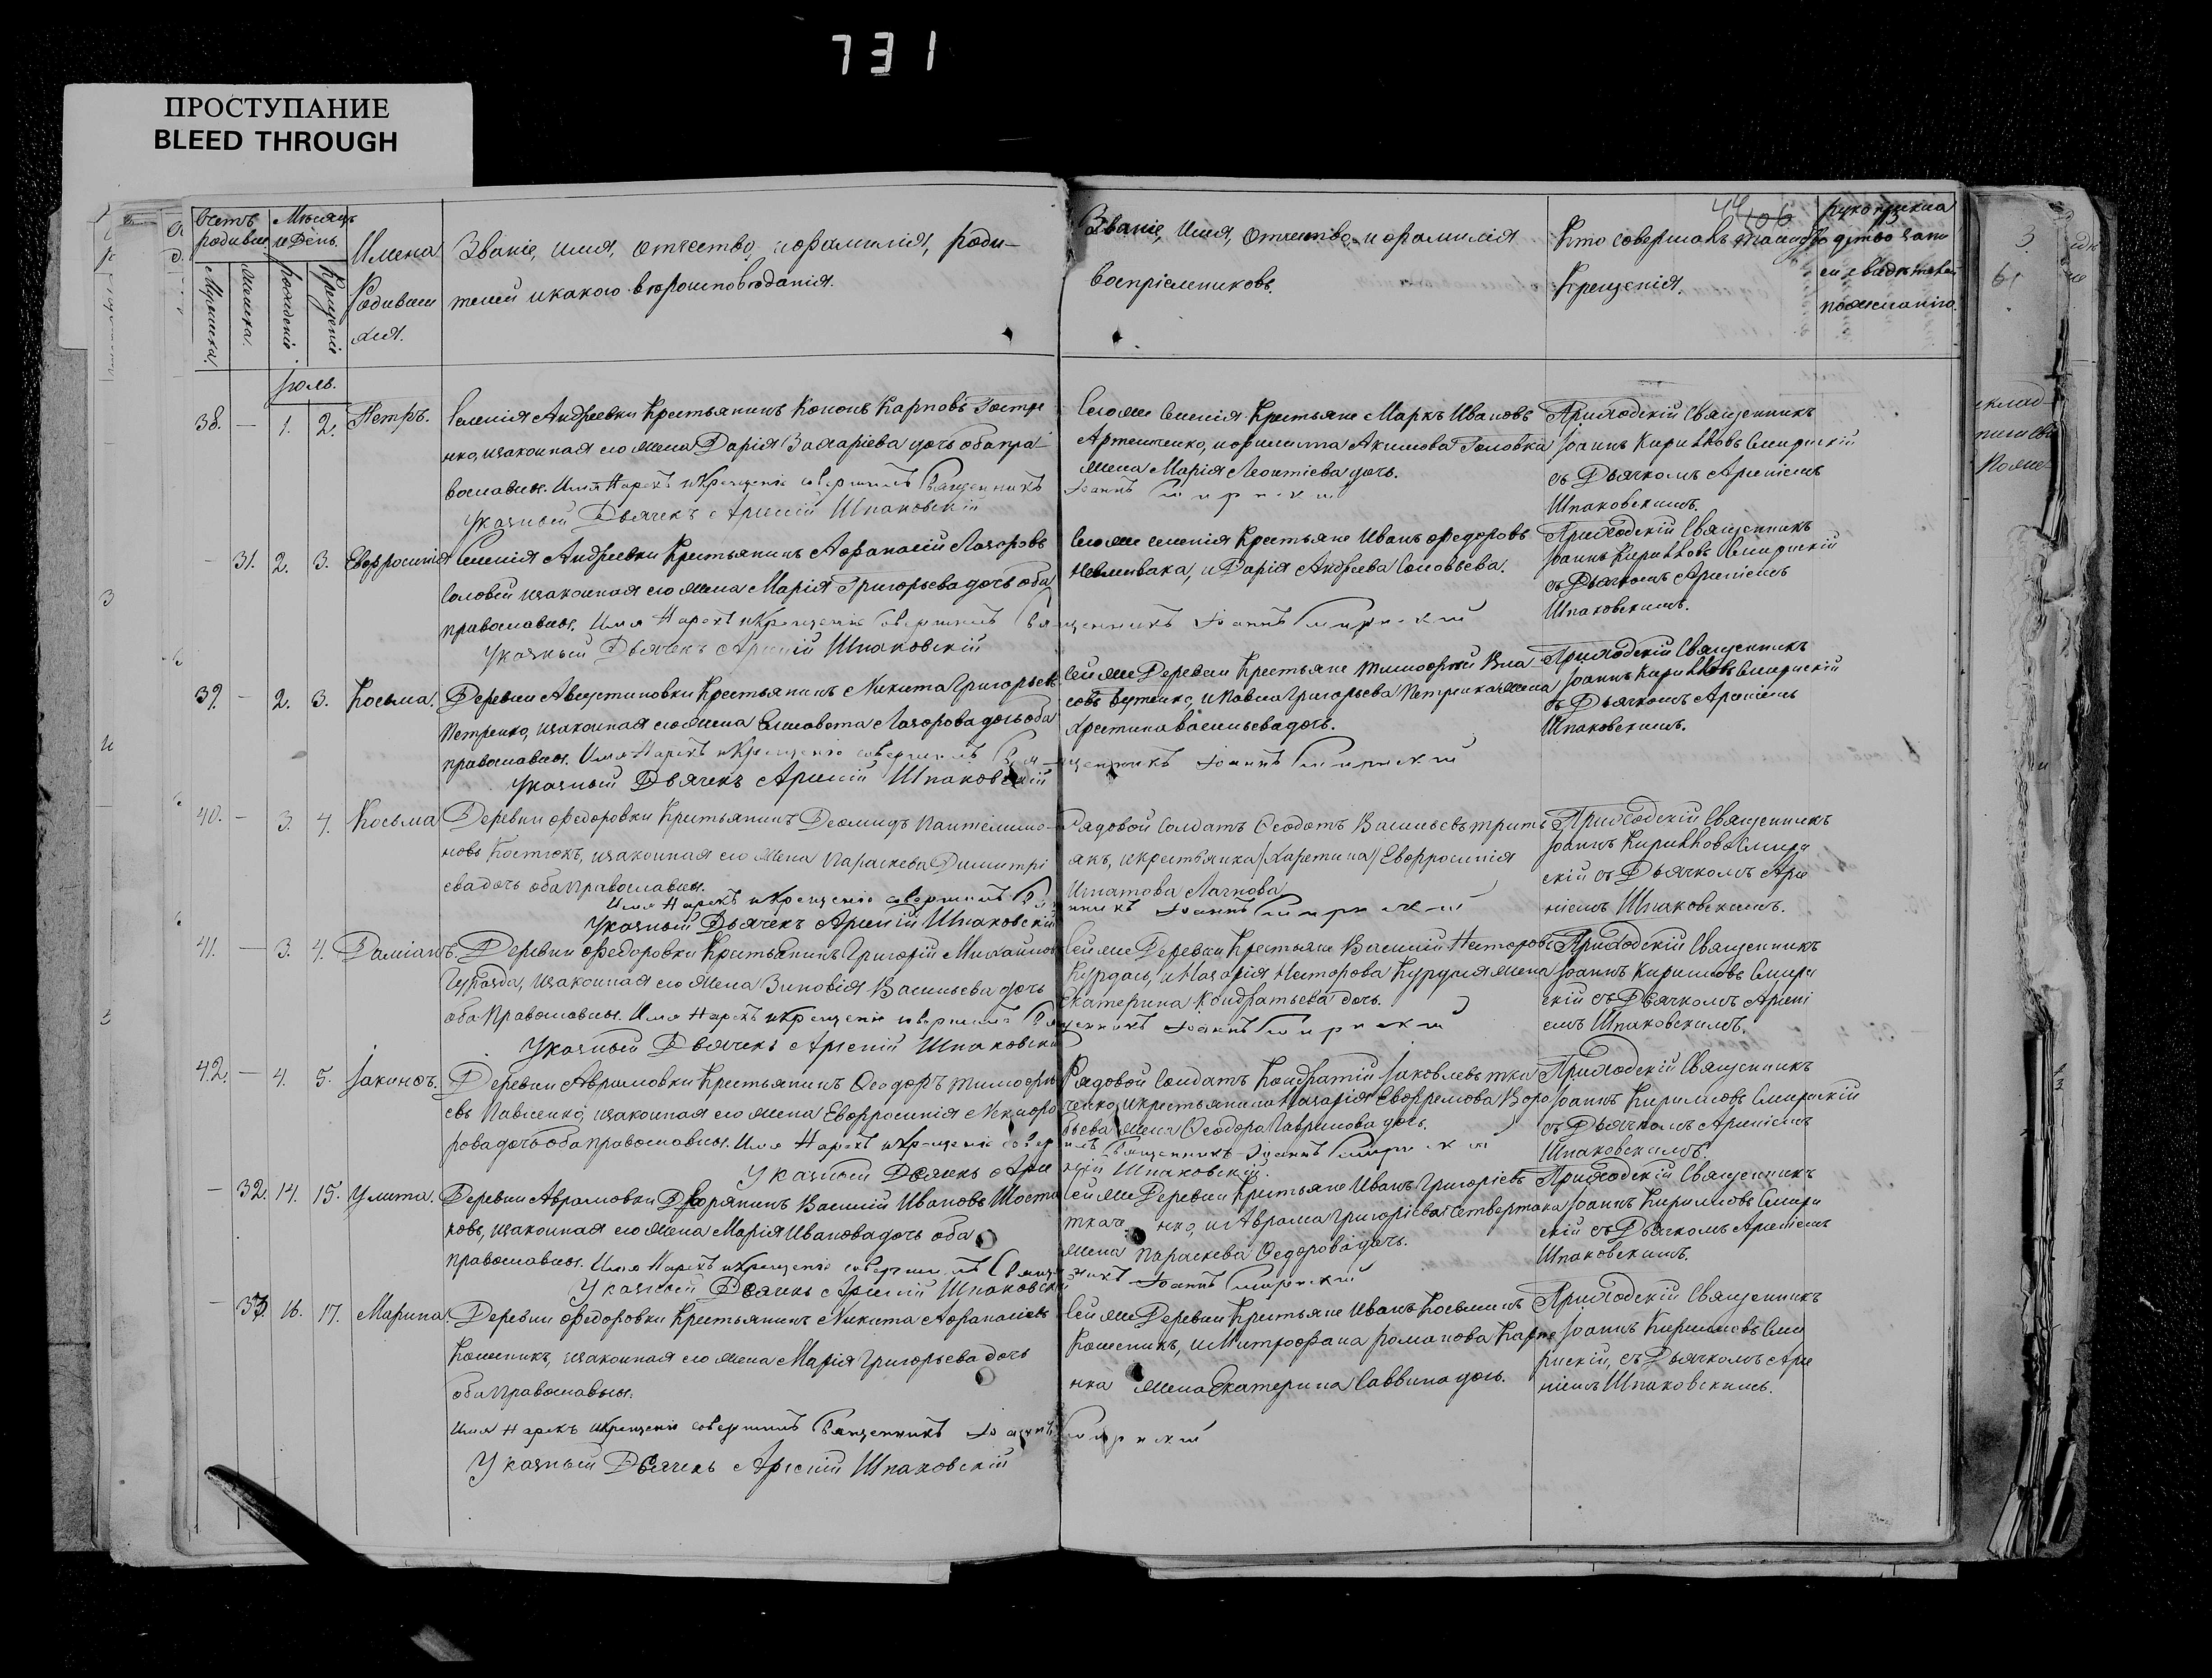 731
ПРОСТУПАНИЕ
BLEED THROUGH
Счетъ
родивши
Мѣсяцъ
и День.
Мужеска.
Женска.
рожденія
Крещенія
Имена
Родивших
ся.
Званіе, имя, отчество, и фамилія, роди-
телей и какого вѣроисповѣданія.
Званіе, Имя, Отчество, и фамилія
воспріемниковъ.
Кто совершалъ таинство
Крещенія.
рукоприкла
дство запи
си свидѣтелей
по желанію.
44
106
Іюль.
38. — 1. 2. Петръ.
Селенія Андреевки Крестьянинъ Кононъ Карповъ
законная его жена Дарія Захаріева дочь оба пра-
вославны. Имя Нарекъ и Крещеніе совершилъ Священникъ
Указный Дьячекъ Арсеній Шпаковскій
Сего же Селенія Крестьяне Маркъ Ивановъ
Артемченко, и Акимова Головка
жена Марія Леонтіева дочь.
Іоаннъ Смирнскій
Приходскій Священникъ
Іоаннъ Кирилловъ Смирнскій
съ Дьячкомъ Арсеніемъ
Шпаковскимъ.
— 31. 2. 3. Евфросинія
Селенія Андреевки Крестьянинъ Афанасій Лазоровъ
Соловей и законная его жена Марія Григорьева дочь оба
православны. Имя Нарекъ и Крещеніе Совершилъ Священникъ Іоаннъ Смирнскій
Указный Дьячекъ Арсеній Шпаковскій
Сего же селенія Крестьяне Иванъ Федоровъ
и Дарія Андреева Соловьева.
Приходскій Священникъ
Іоаннъ Кирилловъ Смирнскій
съ Дьячкомъ Арсеніемъ
Шпаковскимъ.
39. — 2. 3. Косьма.
Деревни Августиновки Крестьянинъ Никита Григорьевъ
Петренко, и законная его жена Елисавета Лазорова дочь оба
православны. Имя Нарекъ и Крещеніе совершилъ Священникъ Іоаннъ Смирнскій
Указный Дьячекъ Арсеній Шпаковскій
Сей же Деревни Крестьяне Тимофей Вла
совъ Бутенко, и Павла Григорьева Петренка жена
Христина Васильева дочь.
Приходскій Священникъ
Іоаннъ Кирилловъ Смирнскій
съ Дьячкомъ Арсеніемъ
Шпаковскимъ.
40. — 3. 4. Косьма
Деревни Федоровки Крестьянинъ Деомидъ Пантелимо-
новъ Костюкъ, и законная его жена Параскева Димитрі
ева дочь оба Православны.
Имя Нарекъ и Крещеніе совершилъ Священникъ Іоаннъ Смирнскій
Указный Дьячекъ Арсеній Шпаковскій
Рядовой Солдатъ Ѳеодотъ Васильевъ
якъ, и крестьянка Евфросинія
Игнатова
Приходскій Священникъ
Іоаннъ Кирилловъ Смирн
скій съ Дьячкомъ Арсе
ніемъ Шпаковскимъ.
41. — 3. 4. Даміанъ.
Деревни Федоровки Крестьянинъ Григорій Михайловъ
и законная его жена Зиновія Васильева дочь
оба Православны. Имя Нарекъ и крещеніе совершилъ Священникъ Іоаннъ Смирнскій
Указный Дьячекъ Арсеній Шпаковскій
Сей же Деревни Крестьяне Василій Несторовъ
Курдась, и Назарія Несторова Курдася жена
Екатерина Кондратьева дочь.
Приходскій Священникъ
Іоаннъ Кирилловъ Смирн
скій съ Дьячкомъ Арсені
емъ Шпаковскимъ.
42. — 4. 5. Іакинѳъ.
Деревни Аврамовки Крестьянинъ Ѳеодоръ Тимофе
евъ Павленко, и законная его жена Евфросинія Никифо
рова дочь оба православны. Имя Нарекъ и Крещеніе совершилъ Священникъ Іоаннъ Смирнскій
Указный Дьячекъ Арсеній Шпаковскій.
Рядовой Солдатъ Кондратій Іаковлевъ Тка
ченко, и крестьянина Назарія Евфремова Воро
бьева жена Ѳеодора Гаврилова дочь.
Приходскій Священникъ
Іоаннъ Кирилловъ Смирнскій
съ Дьячкомъ Арсеніемъ
Шпаковскимъ.
— 32. 14. 15. Улита.
Деревни Аврамовки Дворянинъ Василій Ивановъ
ковъ, и законная его жена Марія Иванова дочь оба
православны. Имя Нарекъ и крещеніе совершилъ Священникъ Іоаннъ Смирнскій
Указный Дьячекъ Арсеній Шпаковскій
Сей же Деревни Крестьяне Иванъ Григоріевъ
Ткаченко, и Аврама Григоріева Четвертака
жена Параскева Ѳедорова дочь.
Приходскій Священникъ
Іоаннъ Кирилловъ Смирн
скій съ Дьячкомъ Арсеніемъ
Шпаковскимъ.
— 33. 16. 17. Марина.
Деревни Федоровки Крестьянинъ Никита Афанасіевъ
Кошеникъ, и законная его жена Марія Григорьева дочь
оба Православны.
Имя Нарекъ и крещеніе совершилъ Священникъ Іоаннъ Смирнскій
Указный Дьячекъ Арсеній Шпаковскій
Сей же Деревни Крестьяне Иванъ Косьминъ
Кошеникъ, и Митрофана Романова Карпе
нка жена Екатерина Саввина дочь.
Приходскій Священникъ
Іоаннъ Кирилловъ Сми
рнскій, съ Дьячкомъ Арсе
ніемъ Шпаковскимъ.